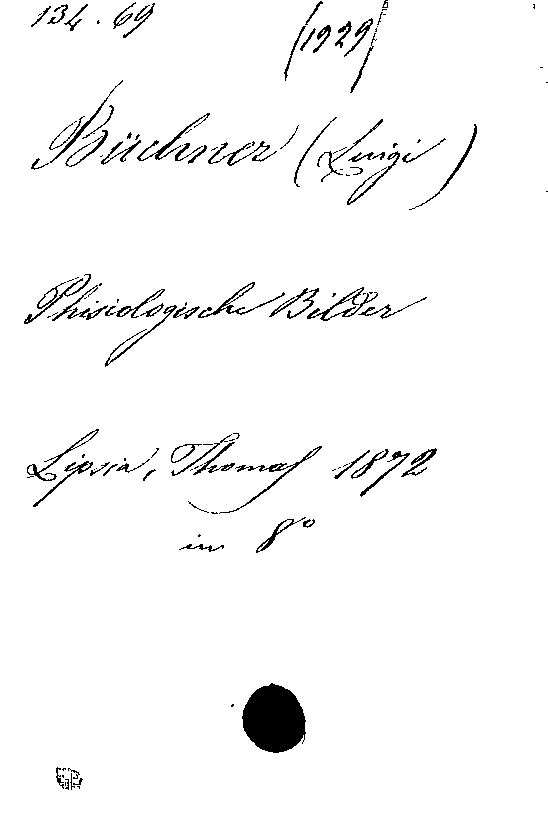 134.69 (1929)
Büchner (Luigi)
Phisiologische Bilder
Lipsia, Thomas 1872
in 8°